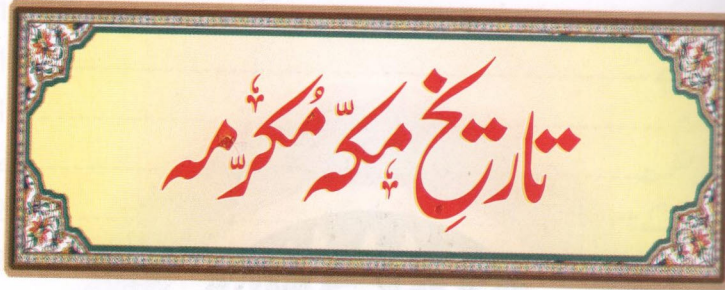 تاریخِ مکّہ مُکرّمہ